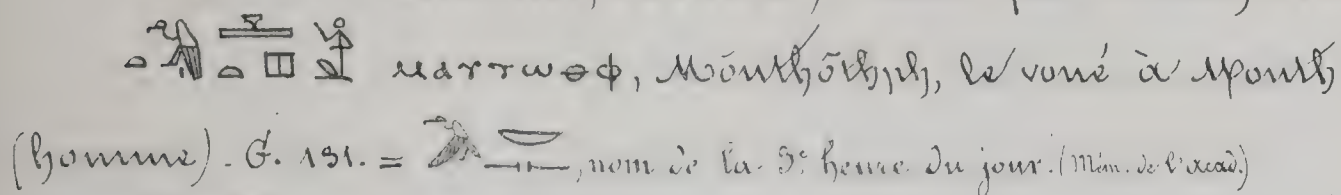 ⲙⲁⲛⲧⲱⲑⲫ, Mōnthōthph, le voué à Month
(homme). G. = , nom de la heure du jour. (Mém. de l'Acad.)